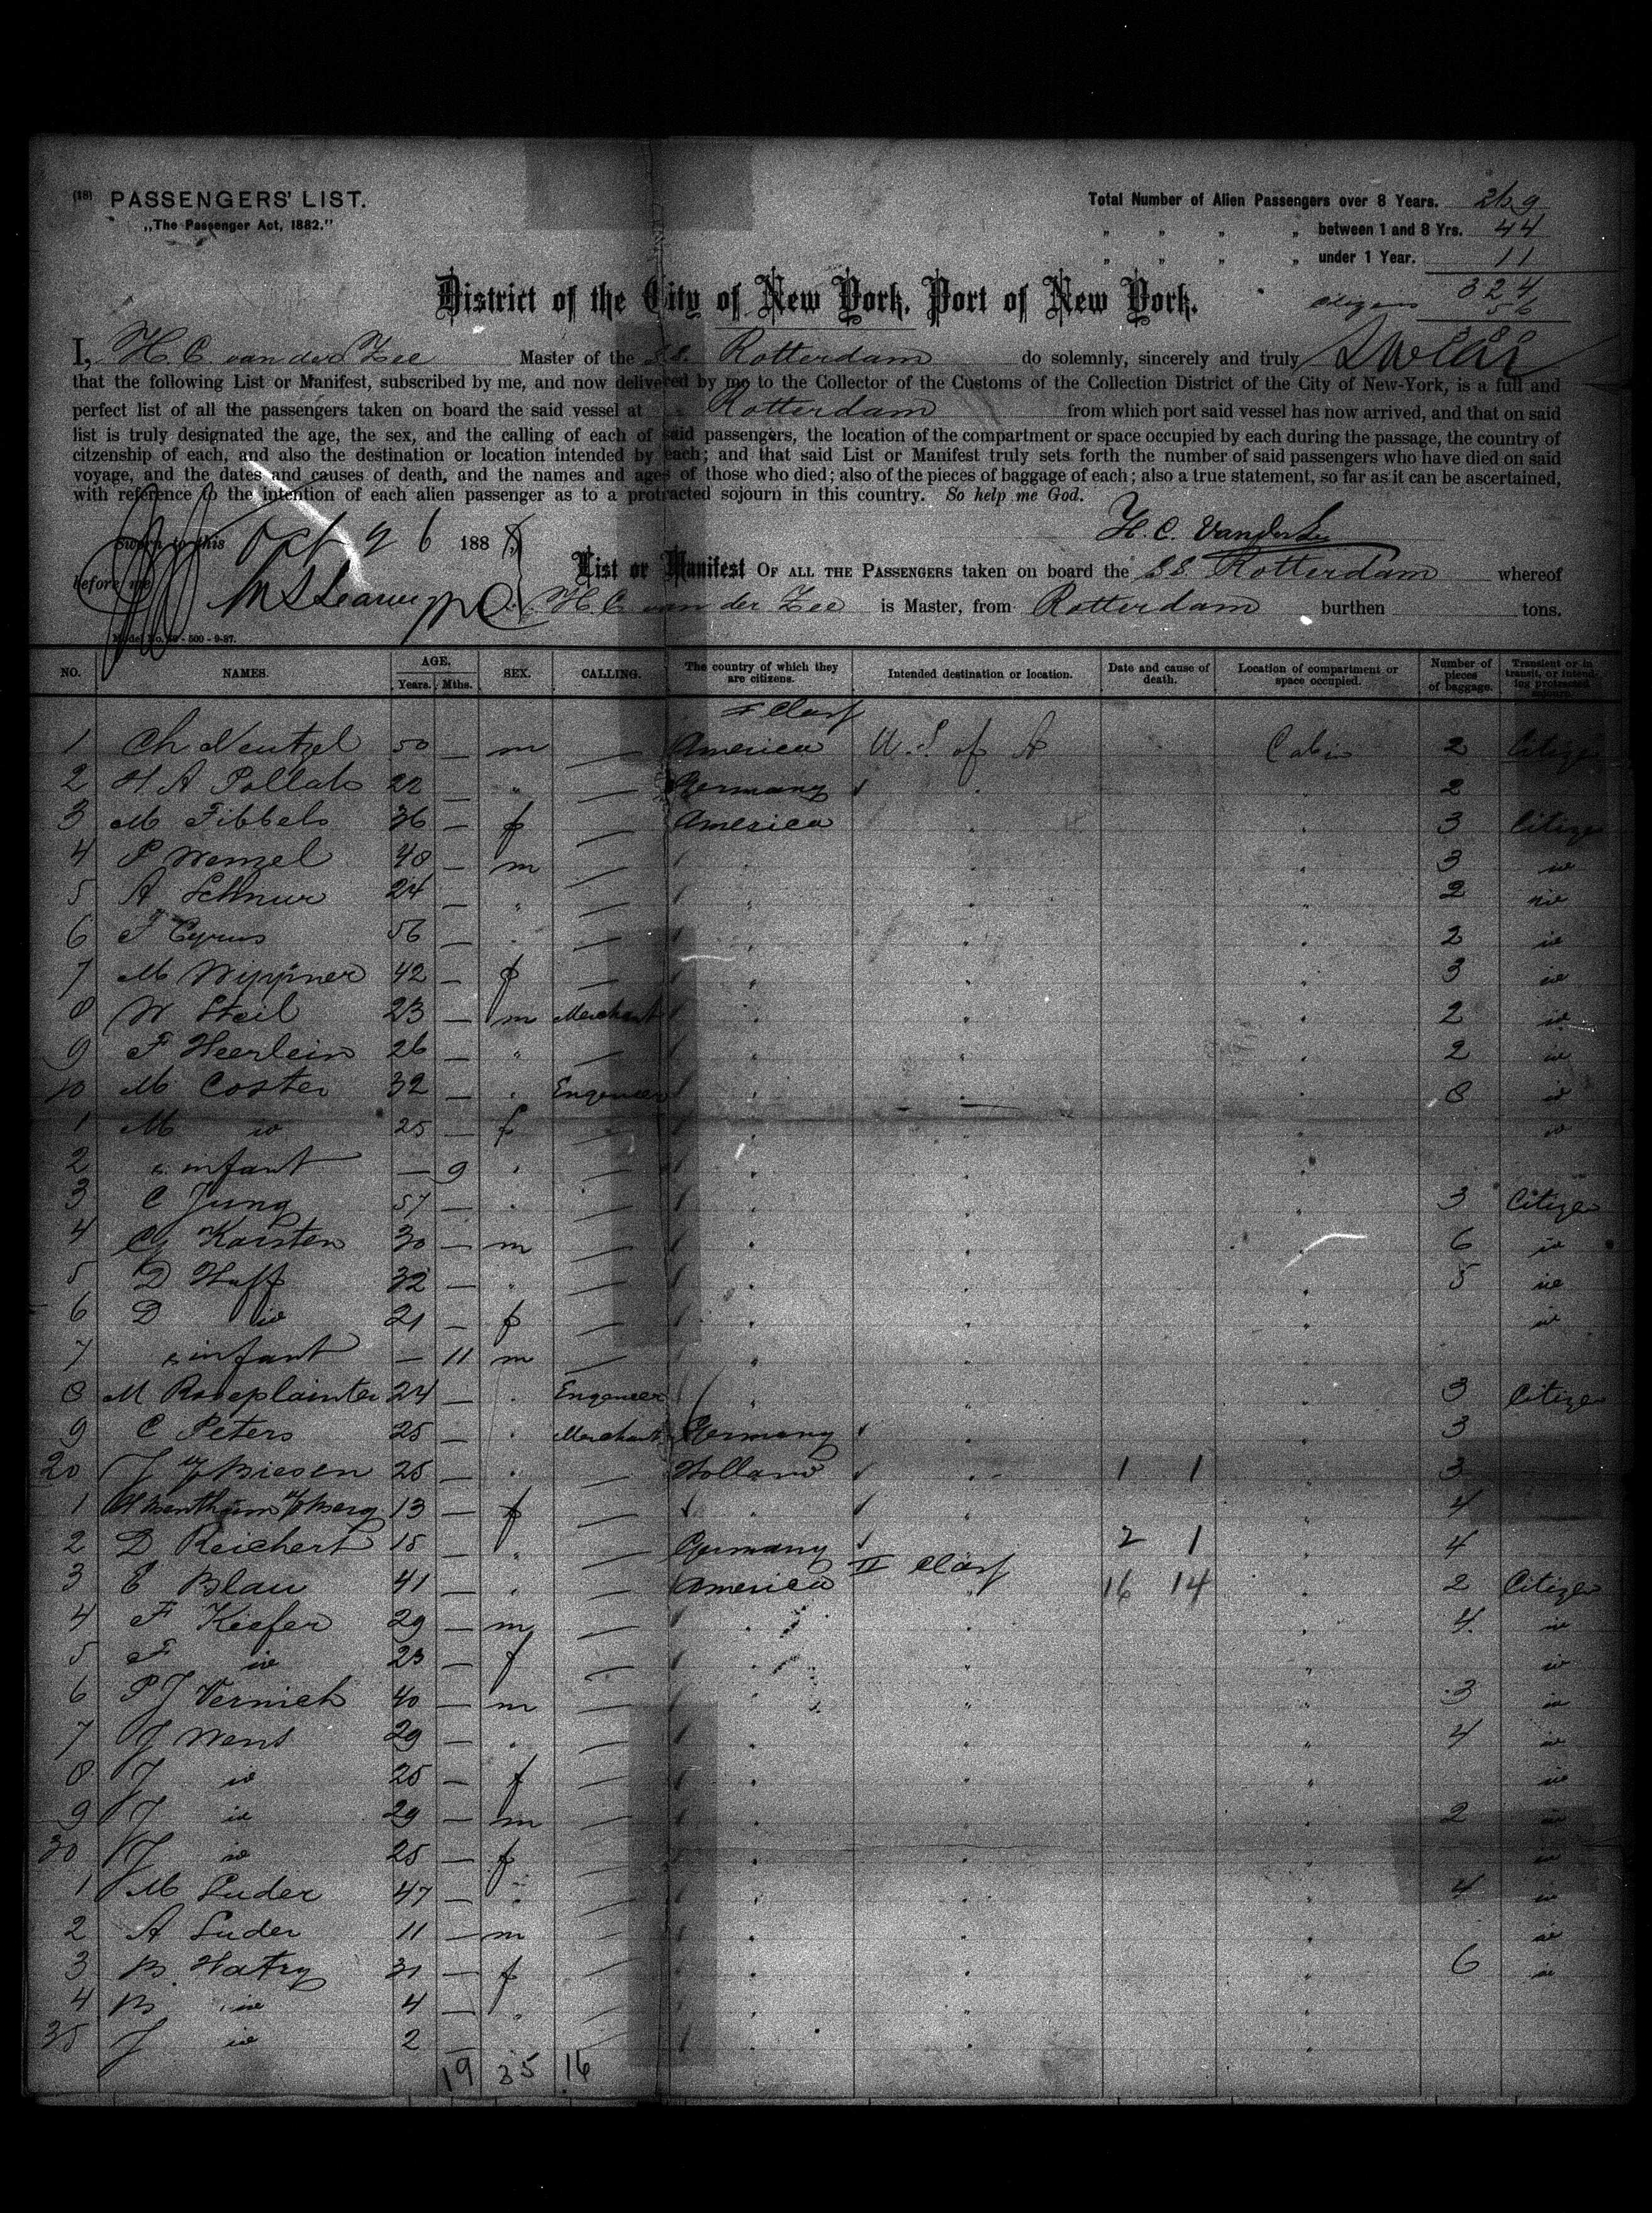 (18) PASSENGERS' LIST.
„The Passenger Act, 1882."
Total Number of Alien Passengers over 8 Years. 269
„ „ „ „ between 1 and 8 Yrs. 44
„ „ „ „ under 1 Year. 11
324
citizens 56
District of the City of New York, Port of New York.
I, H. C. van der Zee Master of the S.S. Rotterdam do solemnly, sincerely and truly Swear
that the following List or Manifest, subscribed by me, and now delivered by me to the Collector of the Customs of the Collection District of the City of New-York, is a full and
perfect list of all the passengers taken on board the said vessel at Rotterdam from which port said vessel has now arrived, and that on said
list is truly designated the age, the sex, and the calling of each of said passengers, the location of the compartment or space occupied by each during the passage, the country of
citzenship of each, and also the destination or location intended by each; and that said List or Manifest truly sets forth the number of said passengers who have died on said
voyage, and the dates and causes of death, and the names and ages of those who died; also of the pieces of baggage of each; also a true statement, so far as it can be ascertained,
with reference to the intention of each alien passenger as to a protracted sojourn in this country. So help me God.
Sworn to this Oct 26 1888
H. C. VanderZee
before me
List or Manifest OF ALL THE PASSENGERS taken on board the S.S. Rotterdam whereof
H. C. van der Zee is Master, from Rotterdam burthen tons.
Model No. - 500 - 9-87.
NO. NAMES. AGE. Years. Mths. SEX. CALLING. The country of which they are citizens. Intended destination or location. Date and cause of death. Location of compartment or space occupied. Number of pieces of baggage. Transient or in transit, or intending protracted sojourn.
I Class
1 Ch Neutzel 50 — m — America U. S. of A Cabin 2 Citizen
2 H A Pollak 22 — " — Germany 2
3 M Tibbels 36 — f — America 3 Citizen
4 P Wenzel 40 — m — 3 io
5 A Schnur 24 — " — 2 io
6 F Cyrus 56 — " — 2 io
7 M Wippner 42 — f — 3 io
8 W Steil 23 — m Merchant 2 io
9 F Heerlein 26 — " — 2 io
10 M Coster 32 — " Engeneer 8 io
1 M io 25 — f — io
2 & infant — 9 " —
3 C Jung 57 — " — 3 Citizen
4 Karsten 30 — m — 6 io
5 D Huff 32 — " — 5 io
6 D io 21 — f — io
7 & infant — 11 m —
8 M Roseplainter 24 — " Engeneer 3 Citizen
9 C Peters 25 — " Merchant Germany 3
20 J Biesen 25 — " — Holland 1 1 3
1 13 — f — 4
2 D Reichert 18 — " — Germany 2 1 4
II Class
3 E Blau 41 — " — America 16 14 2 Citizen
4 F Kiefer 29 — m — 4 io
5 F io 23 — f — io
6 P J Vernich 40 — m — 3 io
7 J Wens 29 — " — 4 io
8 J io 25 — f — io
9 J io 29 — m — 2 io
30 J io 25 — f — io
1 M Luder 47 — " — 4 io
2 A Luder 11 — m io
3 B. Hatry 31 — f — 6 io
4 B io 4 — " —
35 J io 2 — —
19 35 16